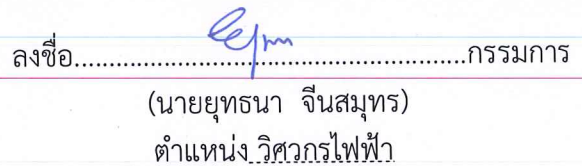 ลงชื่อ............................................................กรรมการ
(นายยุทธนา จีนสมุทร)
ตำแหน่ง วิศวกรไฟฟ้า